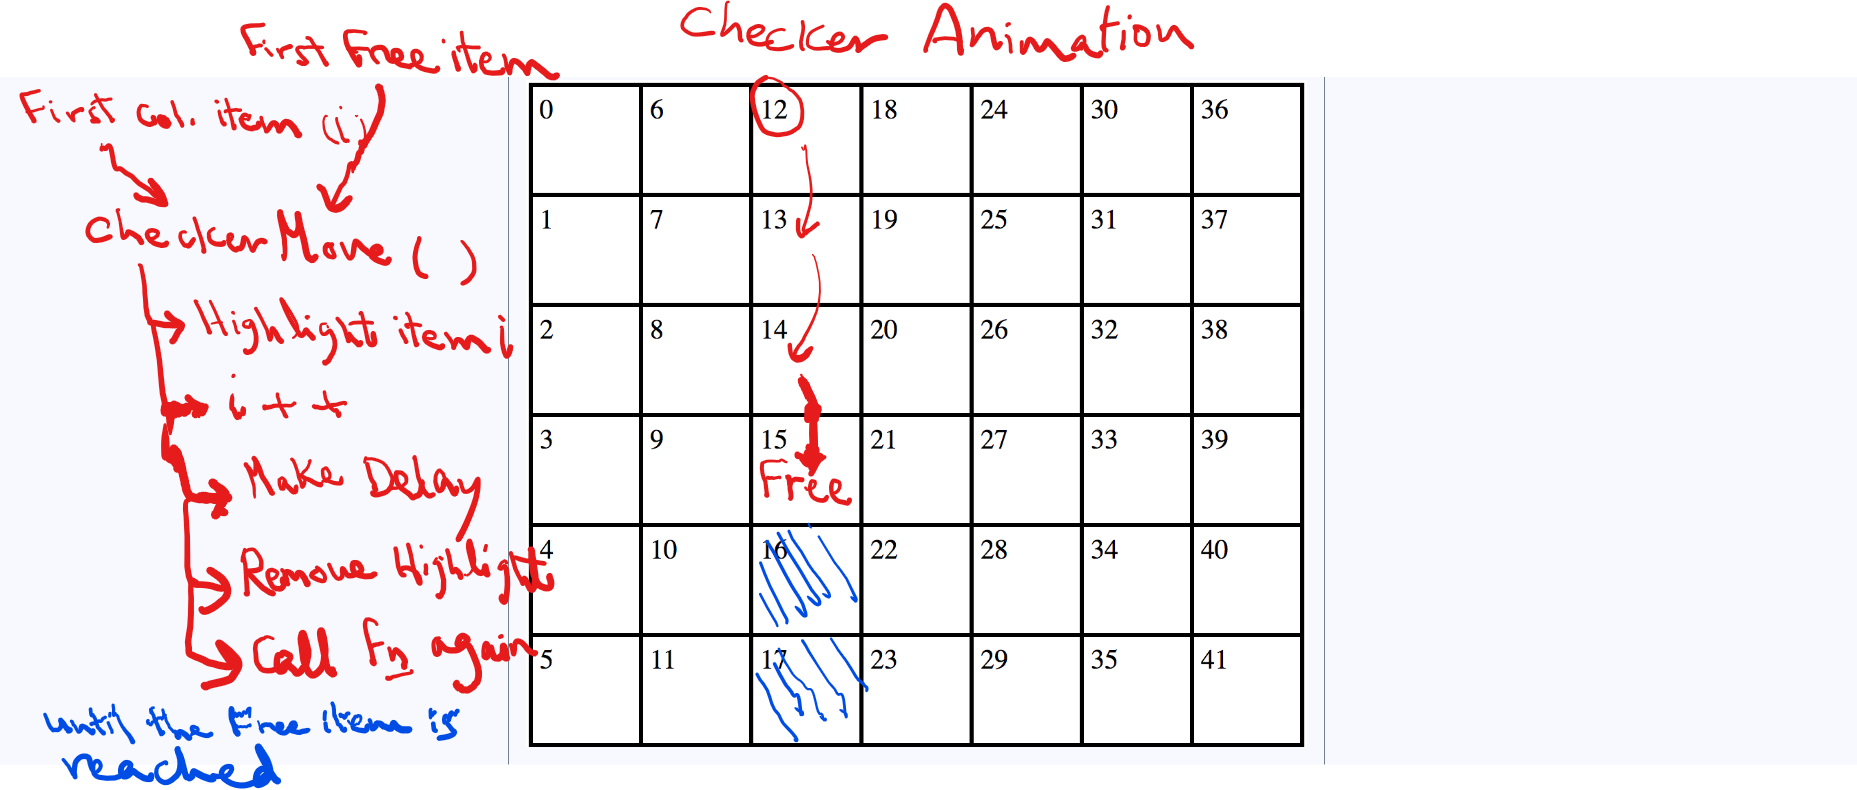 Checker Animation
First Free item
First Col. item (i)
Checker Move ( )
Highlight item i
i + +
Make Delay
Remove Highlight
Call Fn again
until the Free item is
reached
0 6 12 18 24 30 36
1 7 13 19 25 31 37
2 8 14 20 26 32 38
3 9 15 21 27 33 39
Free
4 10 16 22 28 34 40
5 11 17 23 29 35 41